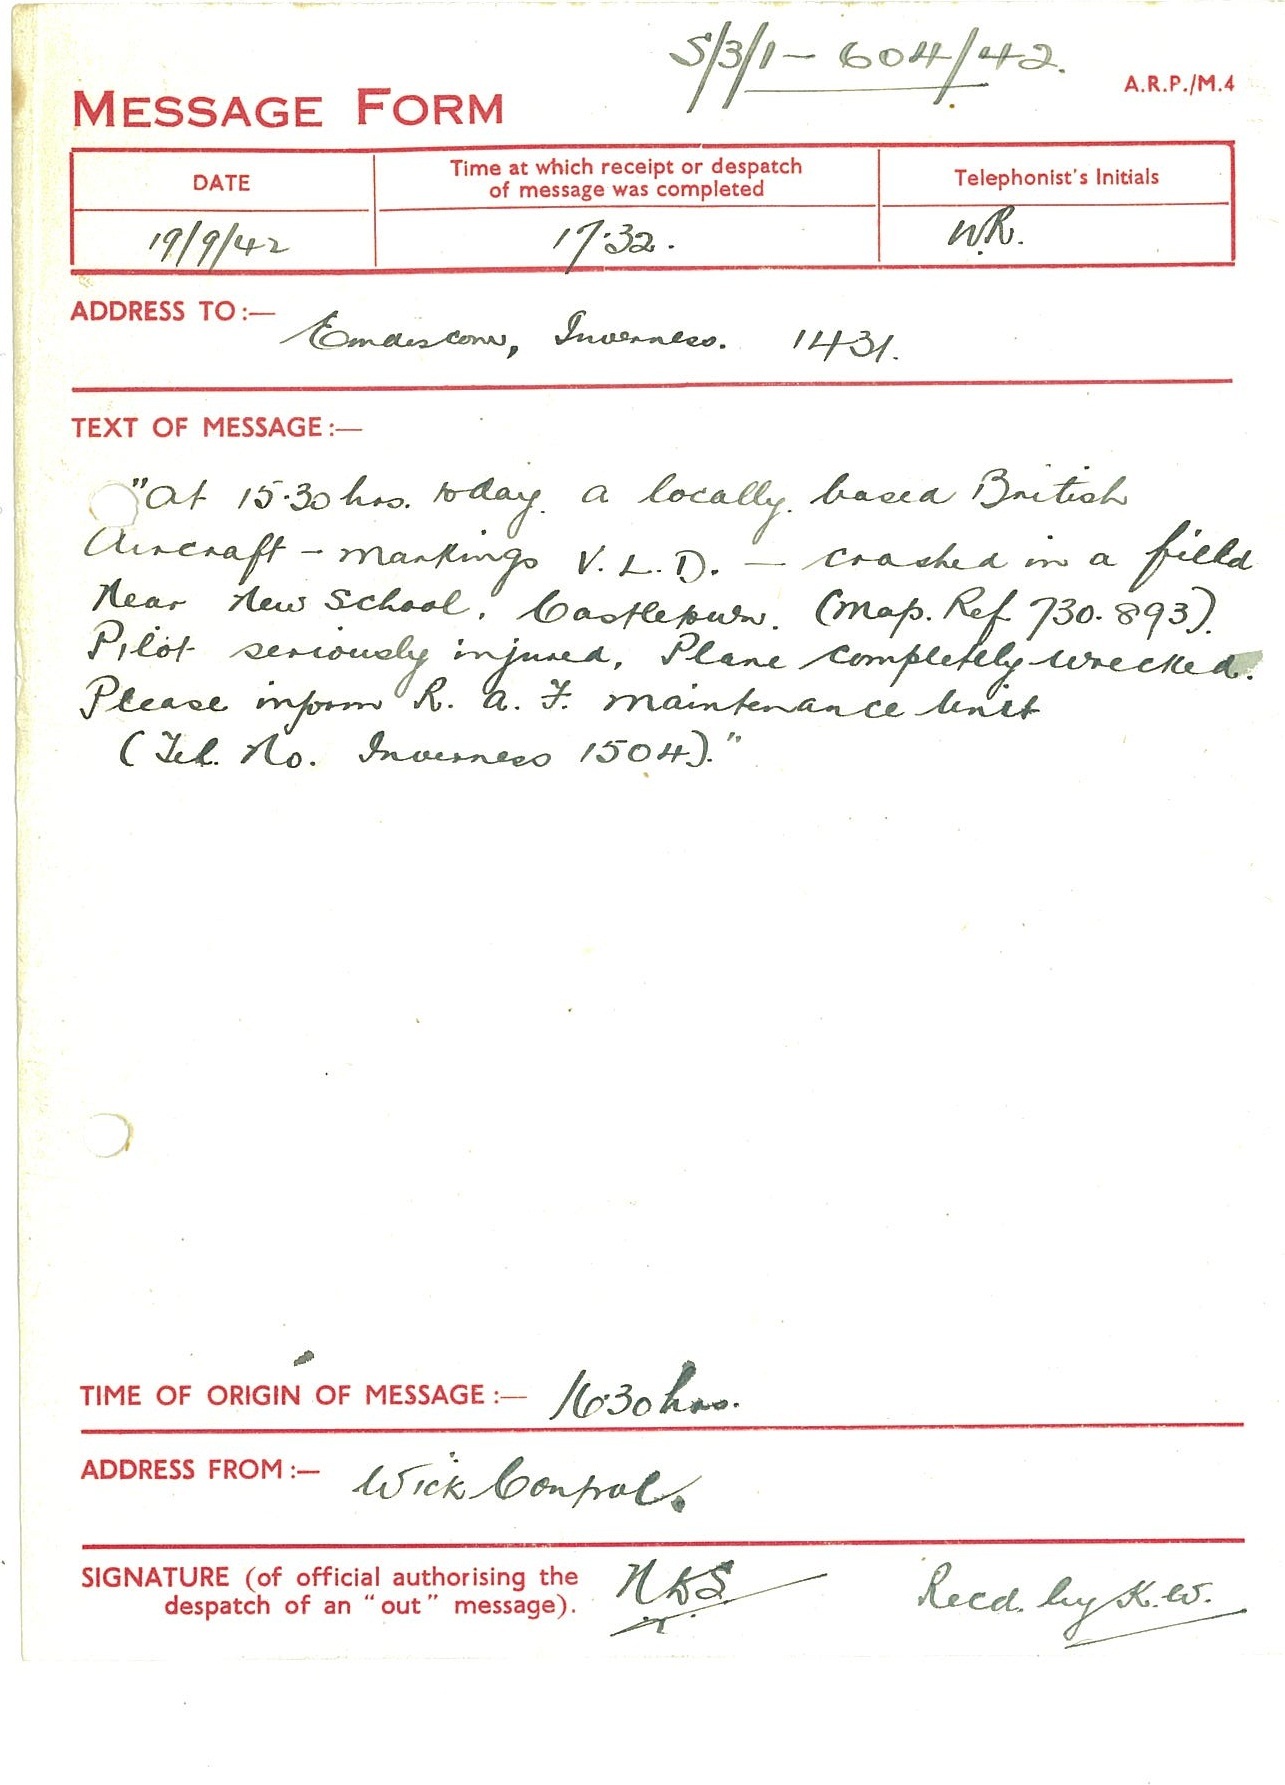 S/3/1 - 604/42.
A.R.P./M.4
MESSAGE FORM
DATE
Time at which receipt or despatch
of message was completed
Telephonist's Initials
19/9/42
17.32.
W.R.
ADDRESS TO:—
Emdescom, Inverness. 1431.
TEXT OF MESSAGE:—
"At 15.30 hrs. today. a locally. based British
Aircraft - markings V. L. D. - crashed in a field
Near New School. Castletown. (Map. Ref. 730. 893).
Pilot seriously injured. Plane completely wrecked.
Please inform R. A. F. Maintenance Unit
(Tel. No. Inverness 1504)."
TIME OF ORIGIN OF MESSAGE:— 16.30 hrs.
ADDRESS FROM:— Wick Control.
SIGNATURE (of official authorising the
despatch of an "out" message).
Recd. by K.W.